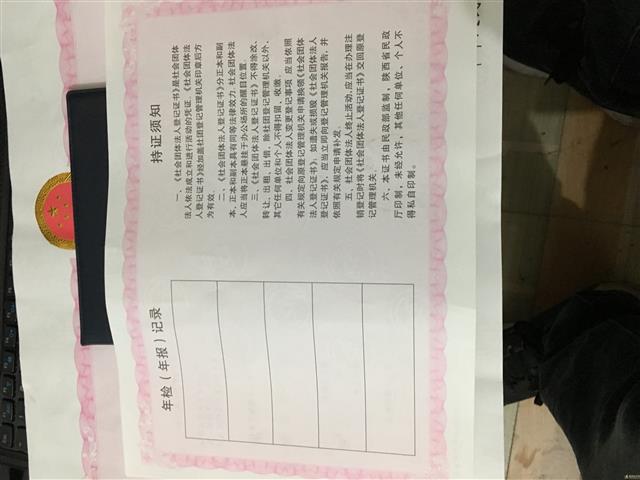 持证须知
一、《社会团体法人登记证书》是社会团体
法人依法成立和进行活动的凭证,《社会团体法
人登记证书》经加盖社团登记管理机关印章后方
为有效。
二、《社会团体法人登记证书》分正本和副
本,正本和副本具有同等法律效力,社会团体法
人应当将正本悬挂于办公场所的醒目位置。
三、《社会团体法人登记证书》不得涂改、
转让、出租、出借,除社团登记管理机关以外,
其它任何单位和个人不得扣留、收缴。
四、社会团体法人变更登记事项,应当依照
有关规定向原登记管理机关申请换领《社会团体
法人登记证书》,如遗失或损毁《社会团体法人
登记证书》,应当立即向登记管理机关报告,并
依照有关规定申请补发。
五、社会团体法人终止活动,应当在办理注
销登记时将《社会团体法人登记证书》交回原登
记管理机关。
六、本证书由民政部监制,陕西省民政
厅印制,未经允许,其他任何单位、个人不
得私自印制。
年检(年报)记录